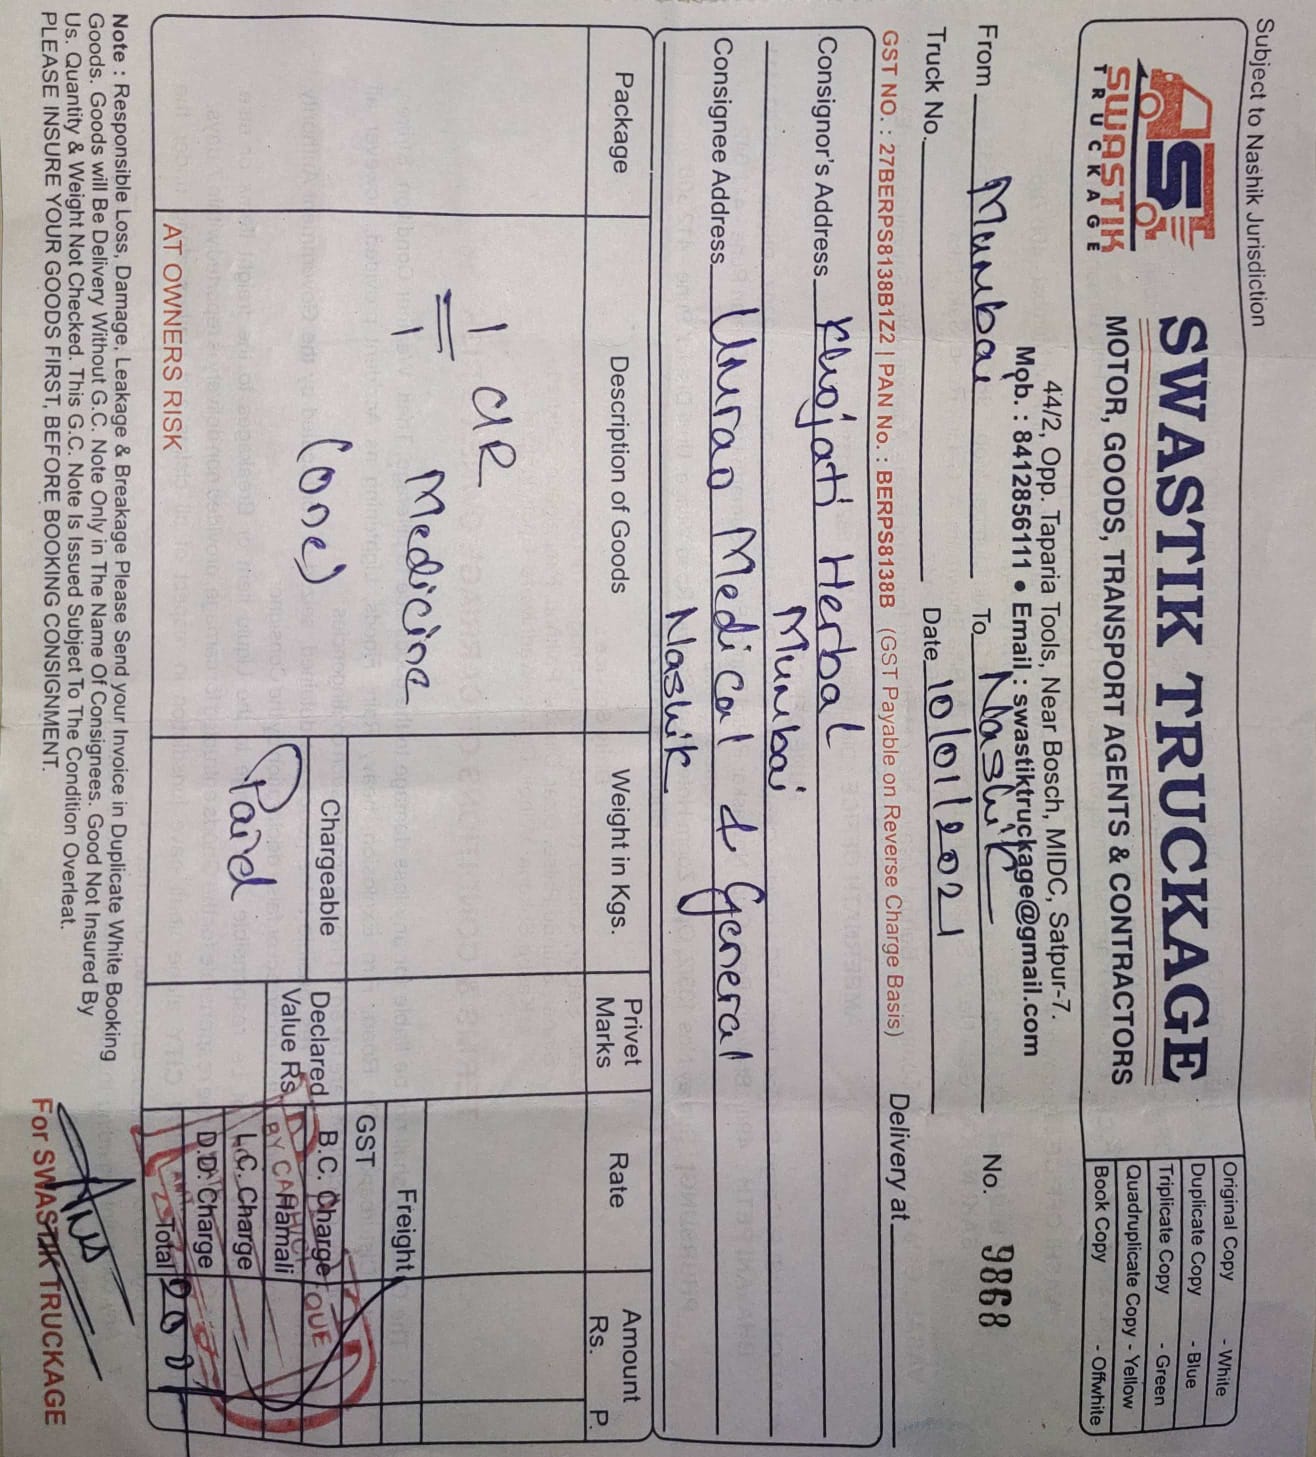 Subject to Nashik Jurisdiction
SWASTIK
TRUCKAGE
SWASTIK TRUCKAGE
MOTOR, GOODS, TRANSPORT AGENTS & CONTRACTORS
44/2, Opp. Taparia Tools, Near Bosch, MIDC, Satpur-7.
Mob. : 8412856111 • Email : swastiktruckage@gmail.com
Original Copy - White
Duplicate Copy - Blue
Triplicate Copy - Green
Quadruplicate Copy - Yellow
Book Copy - Offwhite
From Mumbai To Nashik No. 9868
Truck No. Date 10/01/2021
GST NO. : 27BERPS8138B1Z2 | PAN No. : BERPS8138B (GST Payable on Reverse Charge Basis) Delivery at
Consignor's Address Herbal
Mumbai
Consignee Address Umrao Medical & General
Nashik
Package Description of Goods Weight in Kgs. Privet Marks Rate Amount
Rs. P.
1 CIR
1 Medicine
(one)
Freight
GST
Chargeable Declared Value Rs. B.C. Charge
Hamali
Paid L.C. Charge
D.D. Charge
AT OWNERS RISK Total 200
Note : Responsible Loss, Damage, Leakage & Breakage Please Send your Invoice in Duplicate White Booking
Goods. Goods will Be Delivery Without G.C. Note Only in The Name Of Consignees. Good Not Insured By
Us. Quantity & Weight Not Checked. This G.C. Note Is Issued Subject To The Condition Overleat.
PLEASE INSURE YOUR GOODS FIRST, BEFORE BOOKING CONSIGNMENT.
For SWASTIK TRUCKAGE